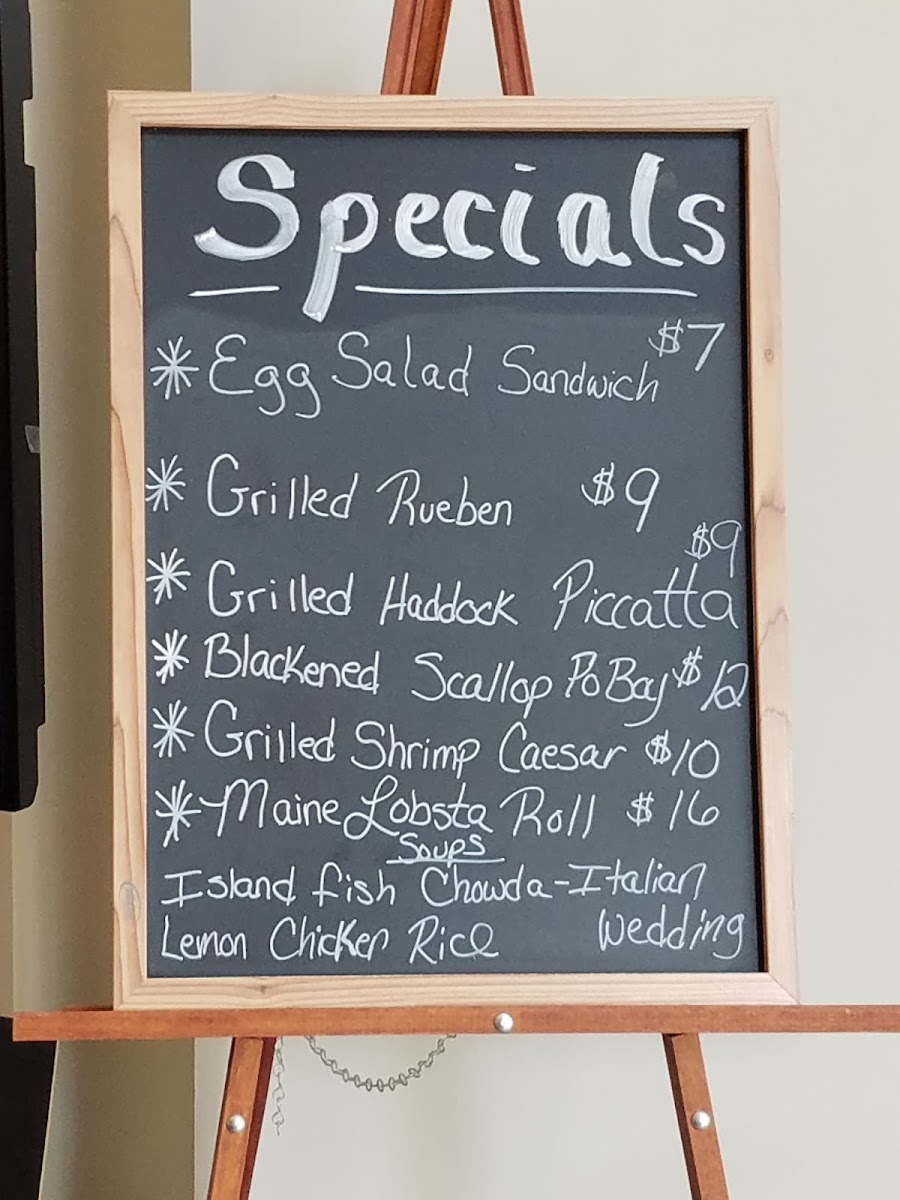 Specials
* Egg Salad Sandwich $7
* Grilled Rueben $9
* Grilled Haddock Piccatta $9
* Blackened Scallop Po Boy $12
* Grilled Shrimp Caesar $10
* Maine Lobsta Roll $16
Soups
Island fish Chowda - Italian wedding
Lemon Chicken Rice